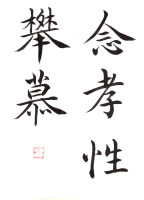 念孝性
攀慕